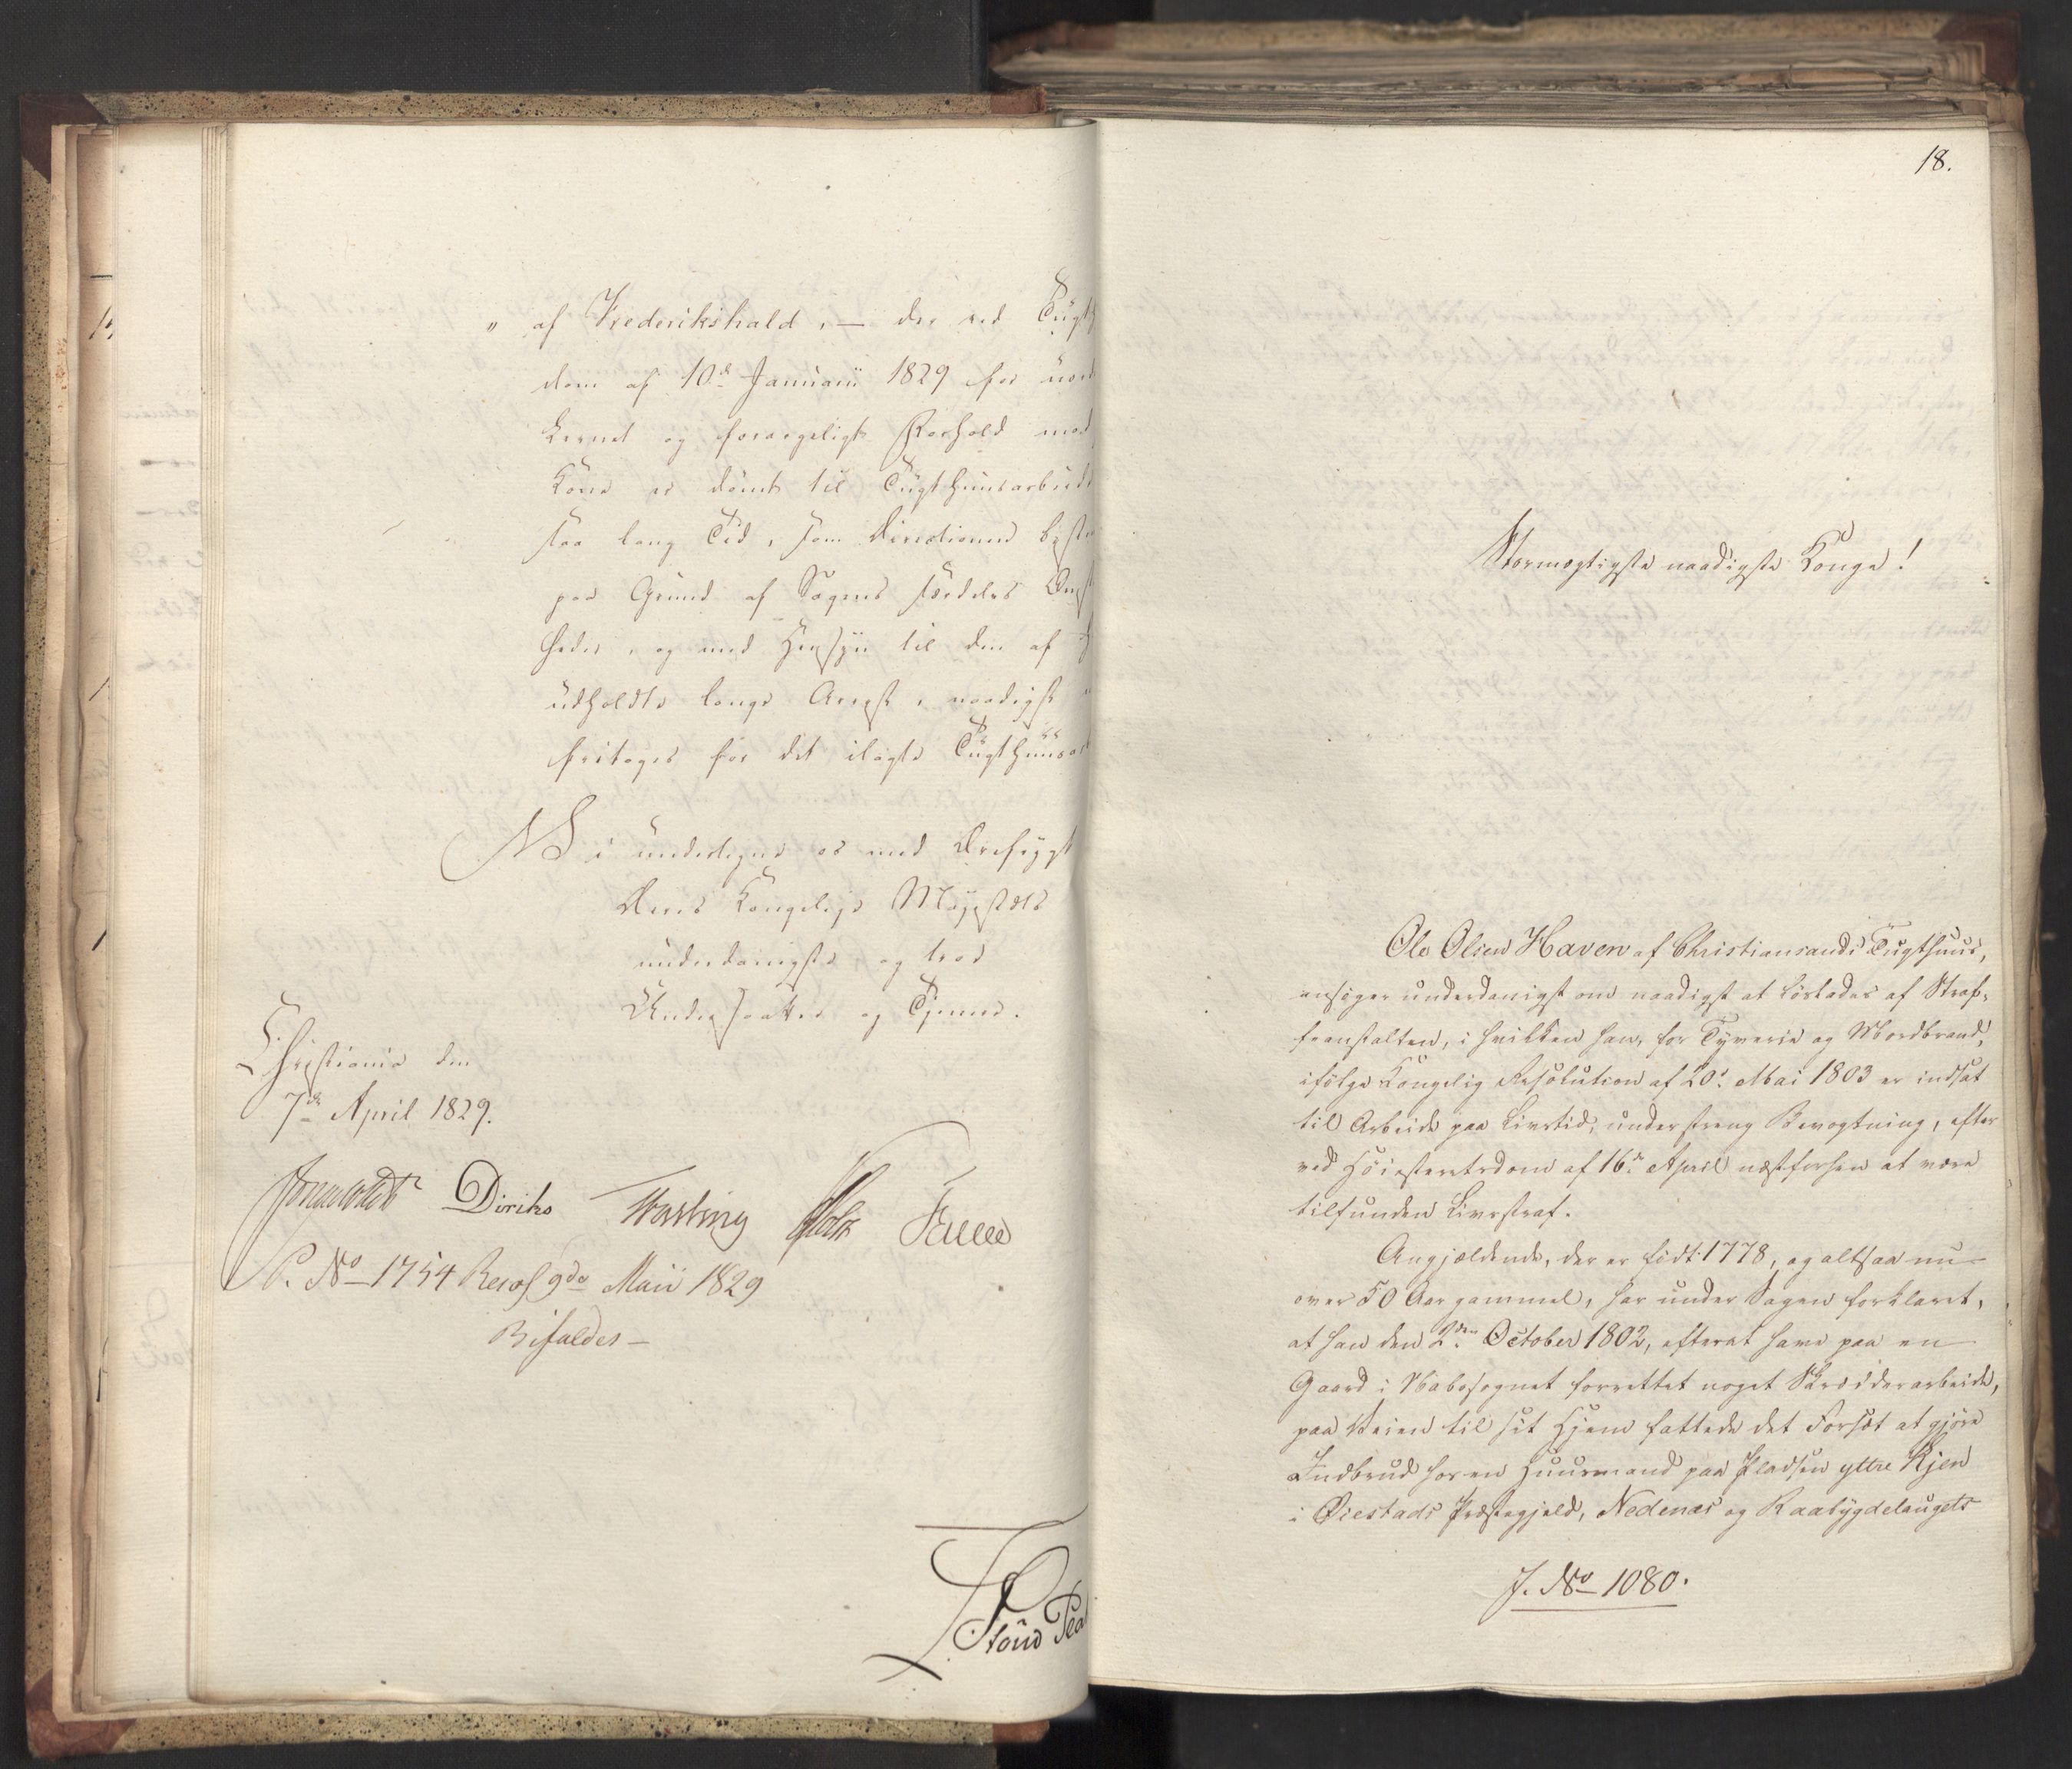 " af Frederikshald, — der ved Tugth
dom af 10de Januarii 1829 for
og forargeligt Forhold mod
Kone er dömt til Tugthuusarbeide
saa lang Tid, som Directionen beste
paa Grund af Sagens særdeles Omst
heder, og med Hensyn til den af
udholdte lange Arrest, naadigst
fritages for det ilagte Tugthuusar
Vi undertegne os med Ærefrygt
Deres Kongelige Majestæts
underdanigste og troe
Undersaatter og Tjenere.
Christiania den
7de April 1829.
Diriks Fasting Holst
P. No 1754 Resol 9de Maii 1829
Bifaldes —
18.
Stormægtigste naadigste Konge!
Ole Olsen Haven af Christiansands Tugthuus,
ansöger underdanigst om naadigst at löslades af Straf-
feanstalten, i hvilken han, for Tyverie og Mordbrand,
ifölge Kongelig Resolution af 20de Mai 1803 er indsat
til Arbeide paa Livstid, under streng Bevogtning, efter
ved Höiesteretsdom af 16de April næstforhen at være
tilfunden Livsstraf.
Angjældende, der er födt 1778, og altsaa nu
over 50 Aar gammel, har under Sagen forklaret,
at han den 2den October 1802, efterat have paa en
Gaard i Nabosognet forrettet noget Skrædderarbeide,
paa Veien til sit Hjem fattede det Forsæt at gjöre
Indbrud hos en Huusmand paa Pladsen yttre Kjen
i Öiestads Præstegjeld, Nedenæs og Raabygdelaugets
J. No 1080.